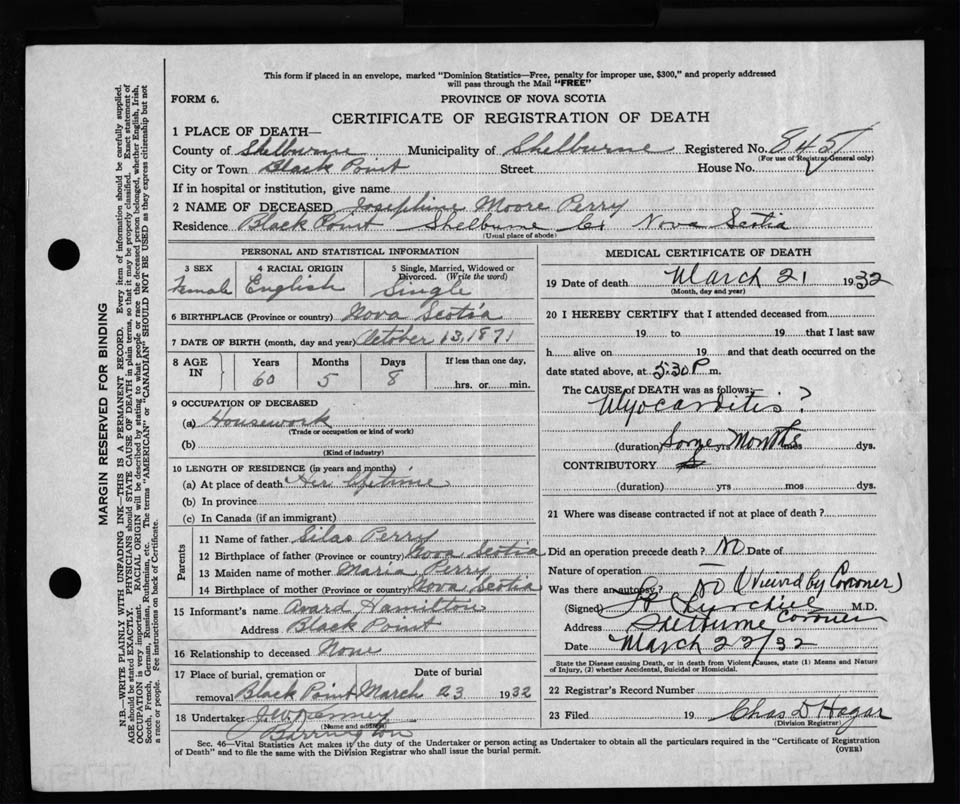 This form if placed in an envelope, marked "Dominion Statistics—Free, penalty for improper use, $300," and properly addressed
will pass through the Mail "FREE"
FORM 6.
PROVINCE OF NOVA SCOTIA
CERTIFICATE OF REGISTRATION OF DEATH
1 PLACE OF DEATH—
County of Shelburne Municipality of Shelburne Registered No. 845
(For use of Registrar General only)
City or Town Black Point Street House No.
If in hospital or institution, give name
2 NAME OF DECEASED Josephine Moore Perry
Residence Black Point Shelburne Co Nova Scotia
(Usual place of abode)
PERSONAL AND STATISTICAL INFORMATION
3 SEX
Female
4 RACIAL ORIGIN
English
5 Single, Married, Widowed or
Divorced. (Write the word)
Single
6 BIRTHPLACE (Province or country) Nova Scotia
7 DATE OF BIRTH (month, day and year) October 13, 1871
8 AGE IN
Years Months Days If less than one day,
60 5 8 hrs. or min.
9 OCCUPATION OF DECEASED
(a) Housework
(Trade or occupation or kind of work)
(b)
(Kind of industry)
10 LENGTH OF RESIDENCE (in years and months)
(a) At place of death Her lifetime
(b) In province
(c) In Canada (if an immigrant)
Parents
11 Name of father Silas Perry
12 Birthplace of father (Province or country) Nova Scotia
13 Maiden name of mother Maria Perry
14 Birthplace of mother (Province or country) Nova Scotia
15 Informant's name Avard Hamilton
Address Black Point
16 Relationship to deceased None
17 Place of burial, cremation or removal Date of burial
Black Point March 23 1932
18 Undertaker
(Name and address)
Barrington
MEDICAL CERTIFICATE OF DEATH
19 Date of death March 21 1932
(Month, day and year)
20 I HEREBY CERTIFY that I attended deceased from
19 to 19 that I last saw
h alive on 19 and that death occurred on the
date stated above, at 5:30 P m.
The CAUSE of DEATH was as follows:
Myocarditis?
(duration) Some yrs Months mos dys.
CONTRIBUTORY
(duration) yrs mos dys.
21 Where was disease contracted if not at place of death?
Did an operation precede death? No Date of
Nature of operation
Was there an autopsy? No (Viewed by Coroner)
(Signed) M.D.
Coroner
Address Shelburne
Date March 22/32
State the Disease causing Death, or in death from Violent Causes, state (1) Means and Nature
of Injury, (2) whether Accidental, Suicidal or Homicidal.
22 Registrar's Record Number
23 Filed 19 Chas D Hagar
(Division Registrar)
Sec. 46—Vital Statistics Act makes it the duty of the Undertaker or person acting as Undertaker to obtain all the particulars required in the "Certificate of Registration
of Death" and to file the same with the Division Registrar who shall issue the burial permit.
(OVER)
MARGIN RESERVED FOR BINDING
N.B.—WRITE PLAINLY WITH UNFADING INK—THIS IS A PERMANENT RECORD. Every item of information should be carefully supplied.
AGE should be stated EXACTLY. PHYSICIANS should STATE CAUSE OF DEATH in plain terms, so that it may be properly classified. Exact statement of
OCCUPATION is very important. RACIAL ORIGIN will be described by stating to what people or race the deceased person belonged, whether English, Irish,
Scotch, French, German, Russian, Ruthenian, etc. The terms "AMERICAN" or "CANADIAN" SHOULD NOT BE USED as they express citizenship but not
a race or people. See instructions on back of Certificate.